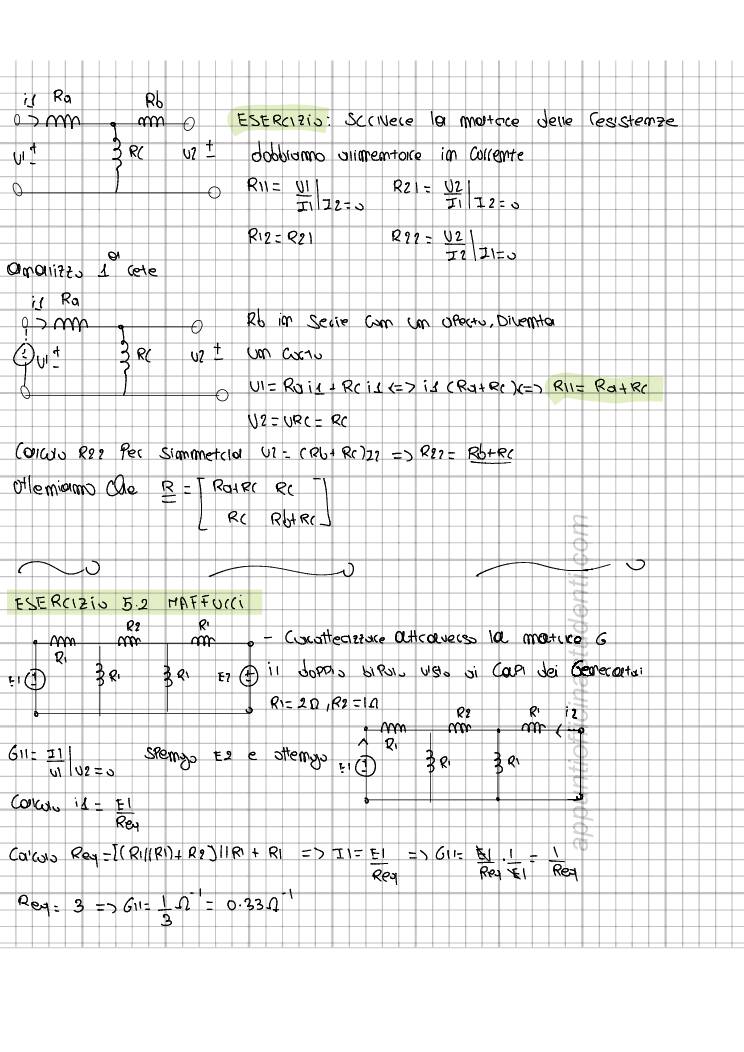 i1 Ra Rb
V1 + - RC V2 + -
ESERCIZIO: Scrivere la matrice delle resistenze
dobbiamo alimentare in corrente
R11 = V1/I1 | I2=0 R21 = V2/I1 | I2=0
R12 = R21 R22 = V2/I2 | I1=0
analizzo 1a rete
i1 Ra
V1 + - RC V2 + -
Rb in serie con un aperto, Diventa
un corto
V1 = Ra i1 + RC i1 <=> i1 (Ra+RC) <=> R11 = Ra+RC
V2 = VRC = RC
Calcolo R22 Per simmetria V2 = (Rb + RC) I2 => R22 = Rb+RC
Otteniamo che R = [ Ra+RC RC
RC Rb+RC ]
ESERCIZIO 5.2 MAFFUCCI
R1 R2 R1
E1 R1 R1 E2
- Caratterizzare attraverso la matrice G
il doppio bipolo visto ai Capi dei Generatori
R1 = 2Ω, R2 = 1Ω
R1 R2 R1 i2
E1 R1 R1
G11 = I1/V1 | V2=0 Spengo E2 e ottengo
Calcolo i1 = E1/Req
Calcolo Req = [(R1//R1)+R2]//R1 + R1 => I1 = E1/Req => G11 = E1/Req · 1/E1 = 1/Req
Req = 3 => G11 = 1/3 Ω⁻¹ = 0.33Ω⁻¹
appuntiofficinastudenti.com